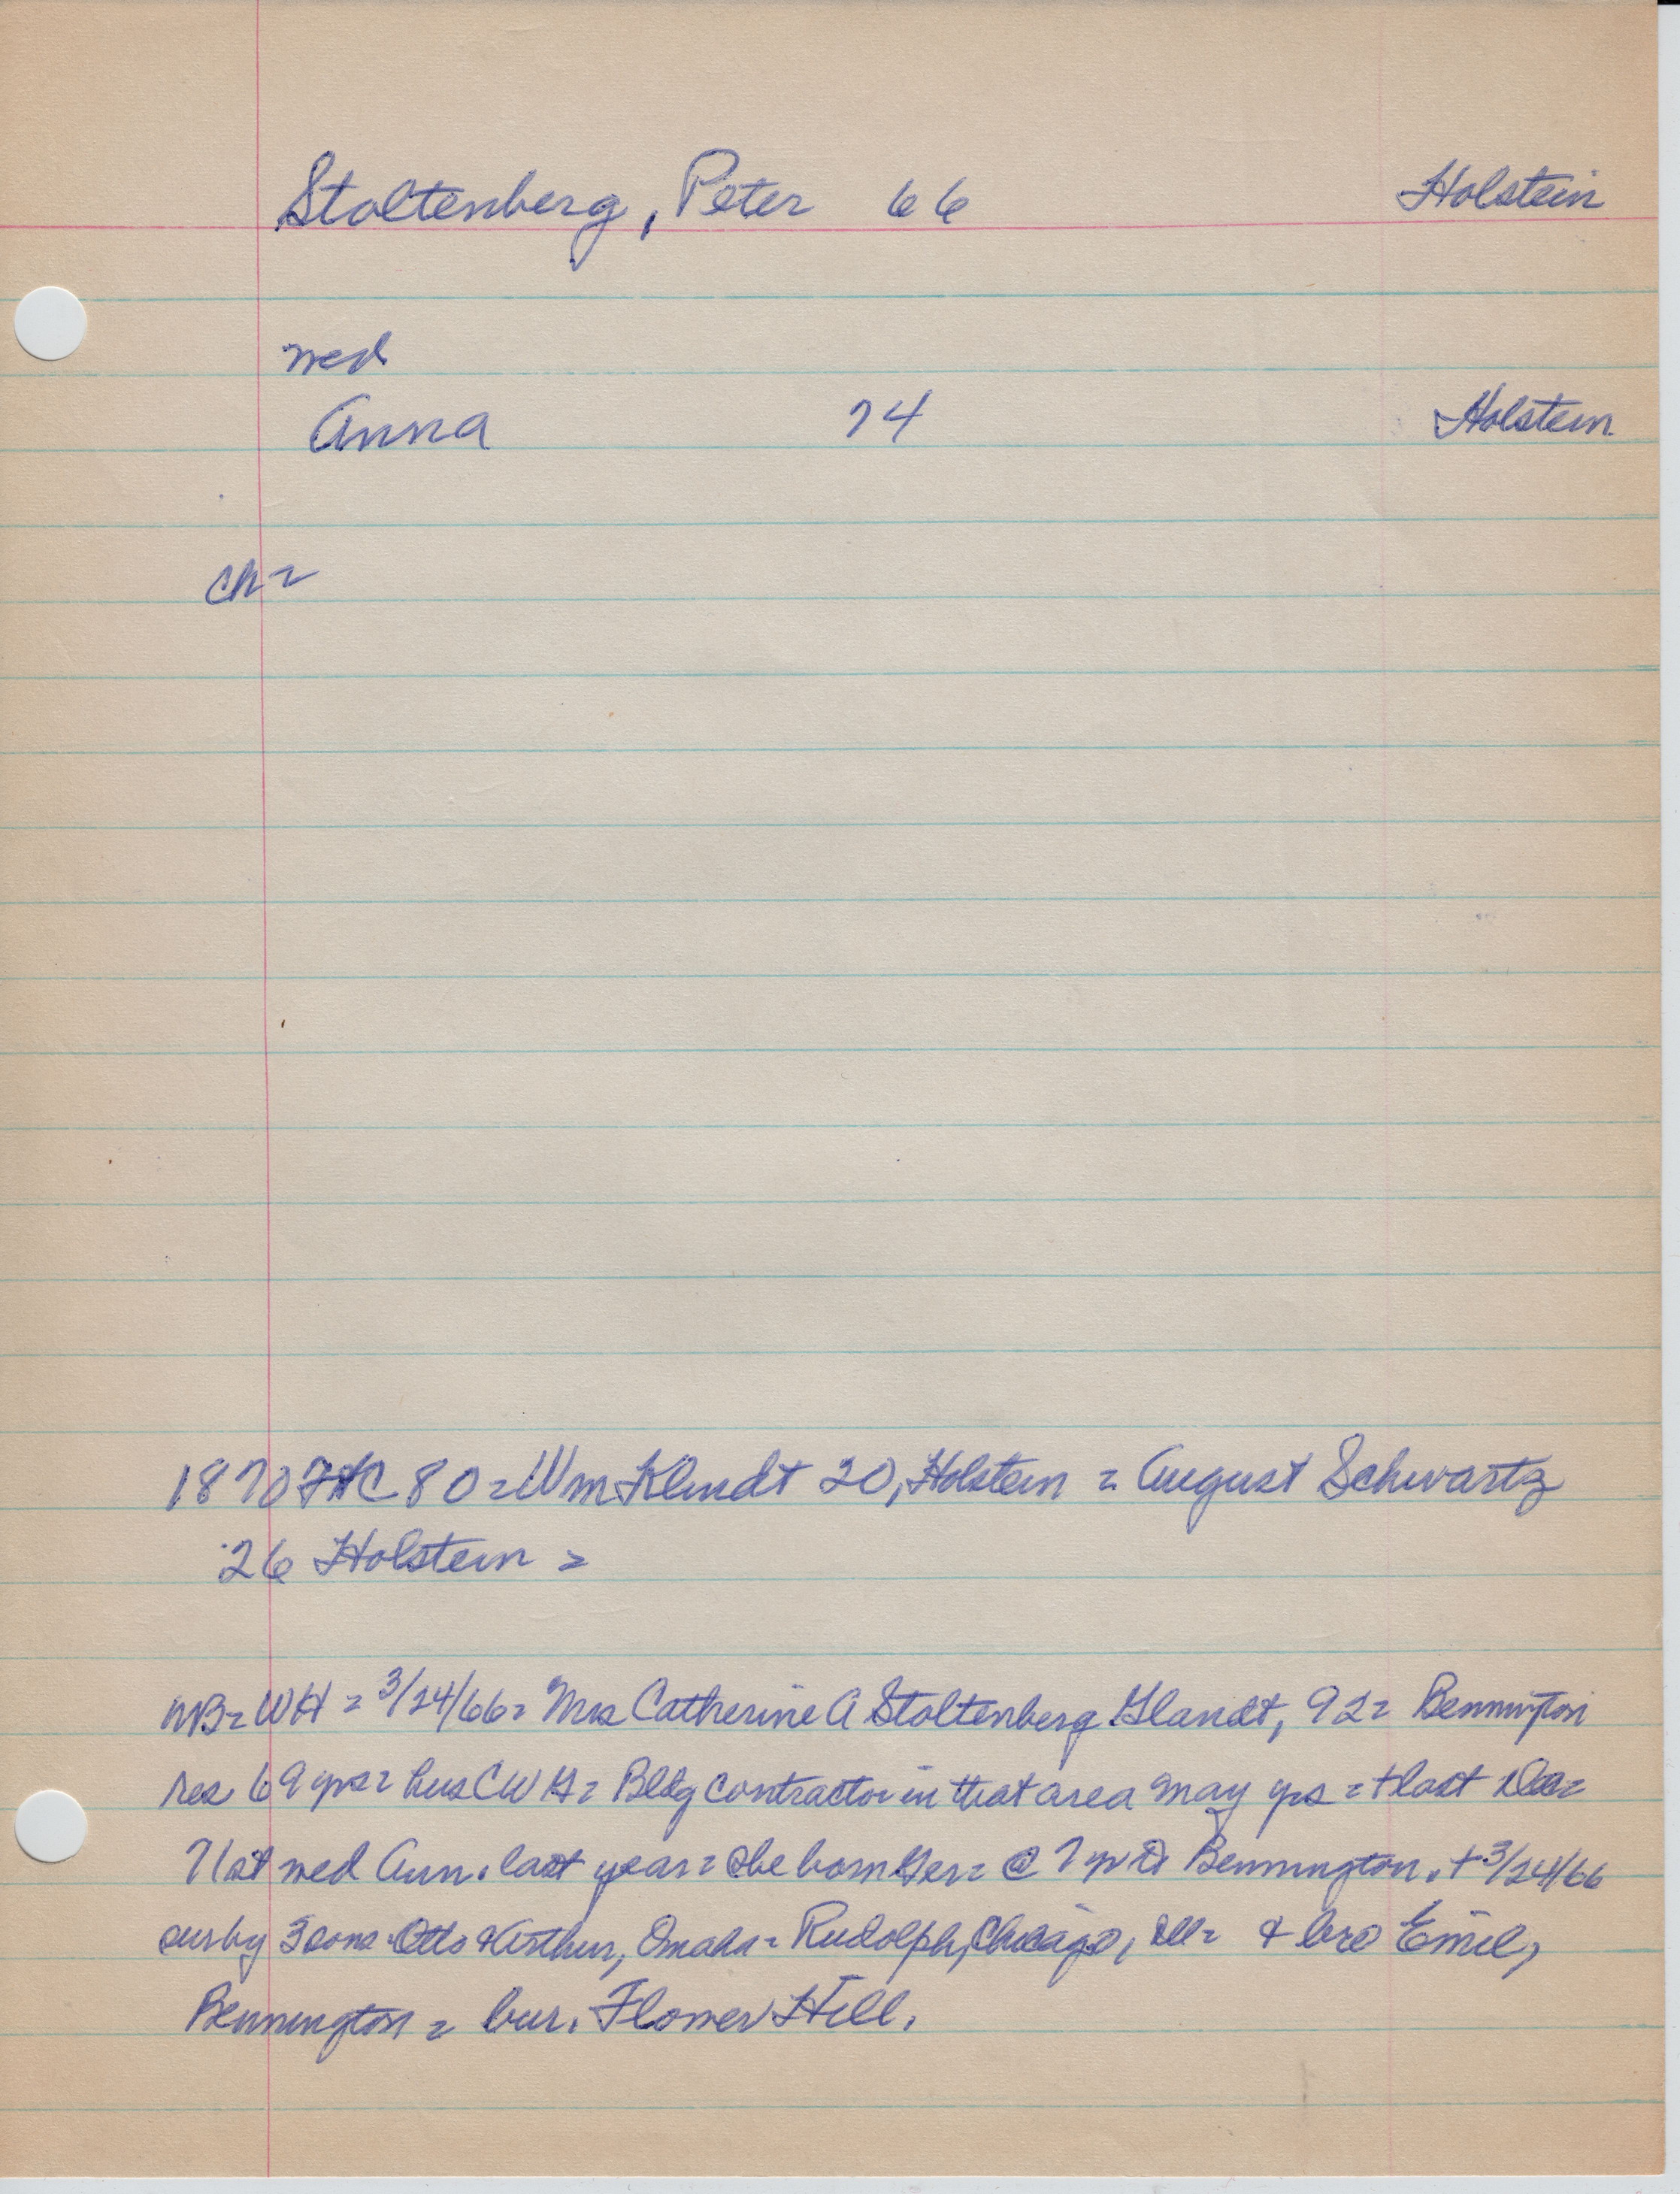 Stoltenberg, Peter 66 Holstein
wed
Anna 74 Holstein
ch =
1870 80 = Wm Klindt 20, Holstein = August Schwartz
26 Holstein =
WH = 3/24/66 = Mrs Catherine A Stoltenberg Glandt, 92 = Bennington
res 69 yrs = hus CWG = Bldg contractor in that area many yrs = + last Dec =
71st wed Ann. last year = she born Ger = @ 7 yr to Bennington. + 3/24/66
sur by 3 sons Otto & Arthur, Omaha = Rudolph, Chicago, Ill = & bro Emil,
Bennington = bur. Flower Hill.